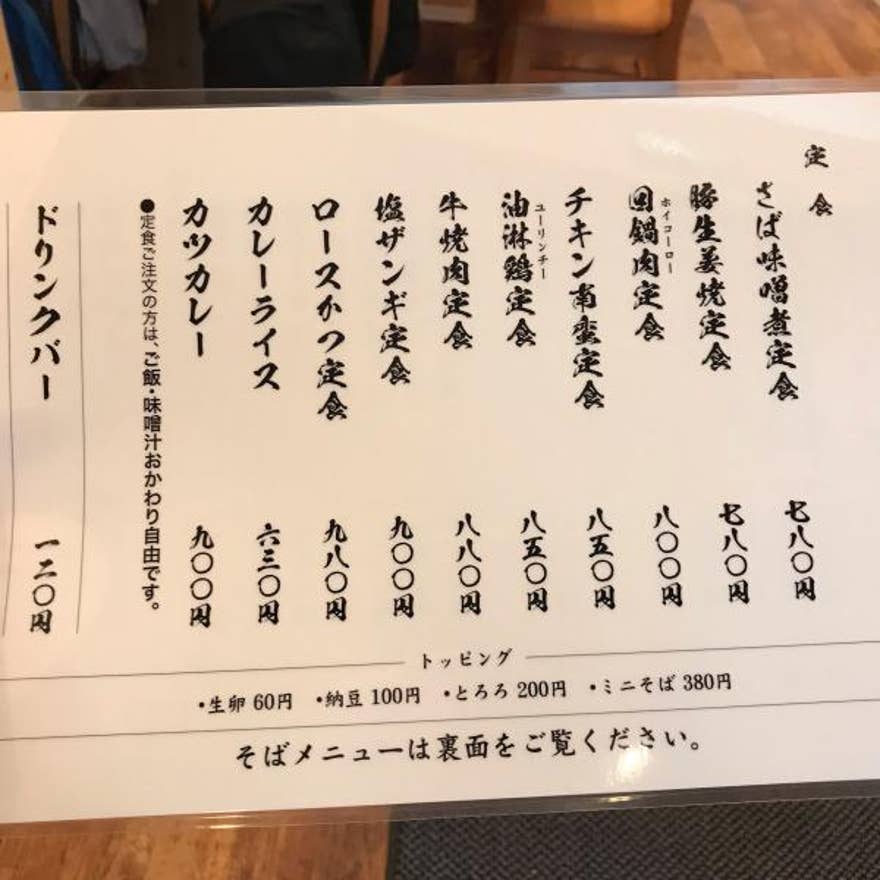 定食
さば味噌煮定食 七八〇円
豚生姜焼定食 七八〇円
回鍋肉定食 八〇〇円
ホイコーロー
チキン南蛮定食 八五〇円
油淋鶏定食 八五〇円
ユーリンチー
牛焼肉定食 八八〇円
塩ザンギ定食 九〇〇円
ロースかつ定食 九八〇円
カレーライス 六三〇円
カツカレー 九〇〇円
●定食ご注文の方は、ご飯・味噌汁おかわり自由です。
ドリンクバー 一二〇円
トッピング
・生卵 60円 ・納豆 100円 ・とろろ 200円 ・ミニそば 380円
そばメニューは裏面をご覧ください。